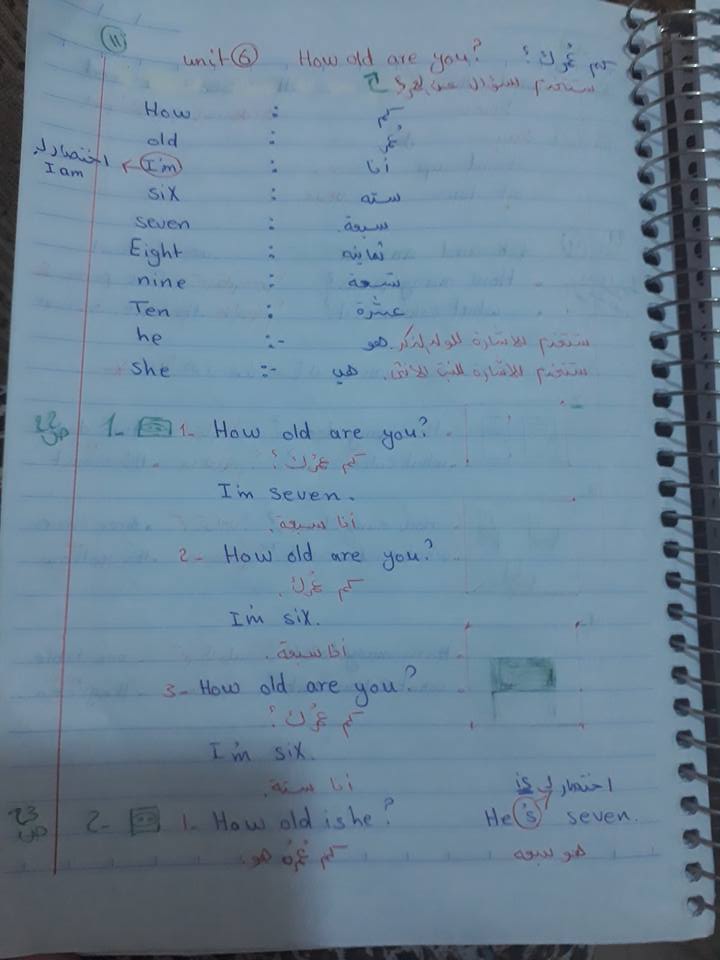 11
unit 6 How old are you? كم عُمرك ؟
ستخدم للسؤال عن العمر
How : كم
old : عُمر
اختصار لـ I am ← I'm : أنا
six : سته
seven : سبعة
Eight : ثمانيه
nine : تسعة
Ten : عشرة
he :- هو. ستخدم للاشارة للولد المذكر
she :- هي. ستخدم للاشارة للبنت الانثى
22 ص 1- 1- How old are you?
كم عمرك ؟
I'm seven.
أنا سبعة.
2- How old are you?
كم عُمرك.
I'm six.
أنا سبعة.
3- How old are you?
كم عُمرك ؟
I'm six.
أنا ستة.
اختصار لـ is
23 ص 2- 1- How old is he? He's seven.
كم عُمرُه هو. هو سبعه